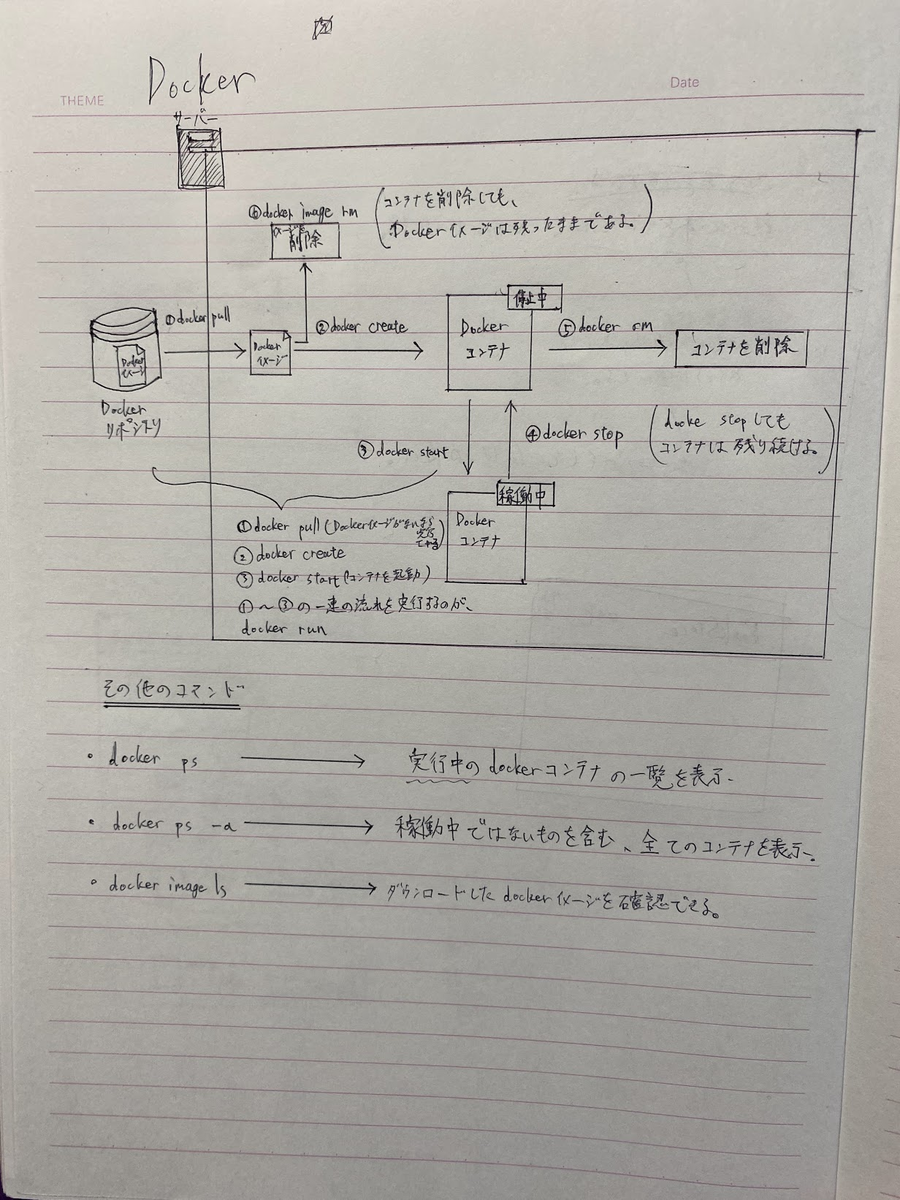 Docker
THEME
Date
サーバー
⑥docker image rm
イメージを
削除
コンテナを削除しても、
Dockerイメージは残ったままである。
①docker pull
②docker create
停止中
Docker
コンテナ
⑤docker rm
コンテナを削除
Docker
イメージ
Docker
イメージ
Docker
リポジトリ
③docker start
④docker stop
docke stopしても
コンテナは残り続ける。
稼働中
Docker
コンテナ
①docker pull(Dockerイメージがないなら
②docker create
③docker start(コンテナを起動)
①〜③の一連の流れを実行するのが、
docker run
その他のコマンド
・docker ps → 実行中のdockerコンテナの一覧を表示.
・docker ps -a → 稼働中ではないものを含む、全てのコンテナを表示.
・docker image ls → ダウンロードしたdockerイメージを確認できる。